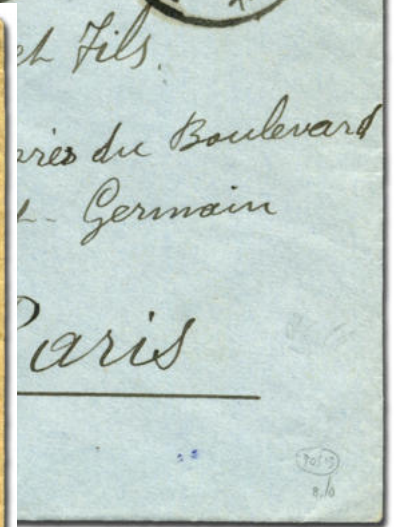 et Fils.
près du Boulevard
t- Germain
Paris